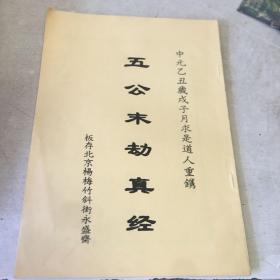 中元乙丑歲戌子月求是道人重鐫
五公末劫真经
板存北京楊梅竹斜街永盛齋